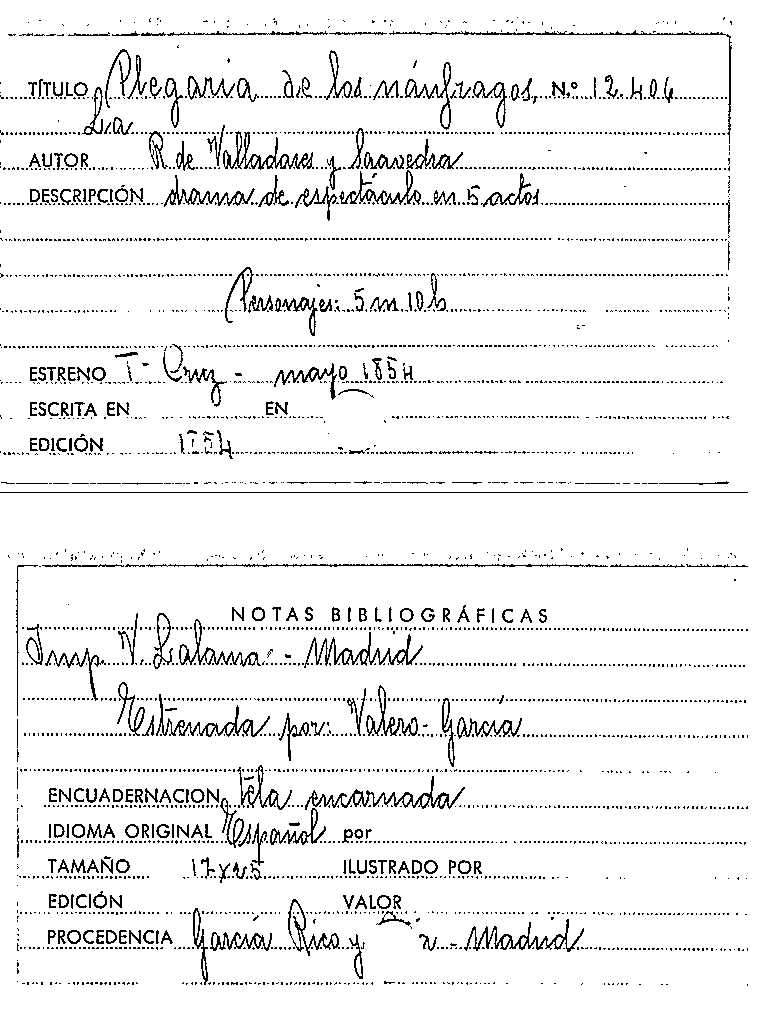 TÍTULO Plegaria de los náufragos, N.º 12.404
La
AUTOR R de Valladares y Saavedra
DESCRIPCIÓN drama de espectáculo en 5 actos
Personajes: 5 m 10 h
ESTRENO T- Cruz - mayo 1854
ESCRITA EN EN
EDICIÓN 1854
NOTAS BIBLIOGRÁFICAS
Imp. V. Lalama - Madrid
Estrenada por: Valero - García
ENCUADERNACION tela encarnada
IDIOMA ORIGINAL Español por
TAMAÑO 17x25 ILUSTRADO POR
EDICIÓN VALOR
PROCEDENCIA García Rico y - Madrid